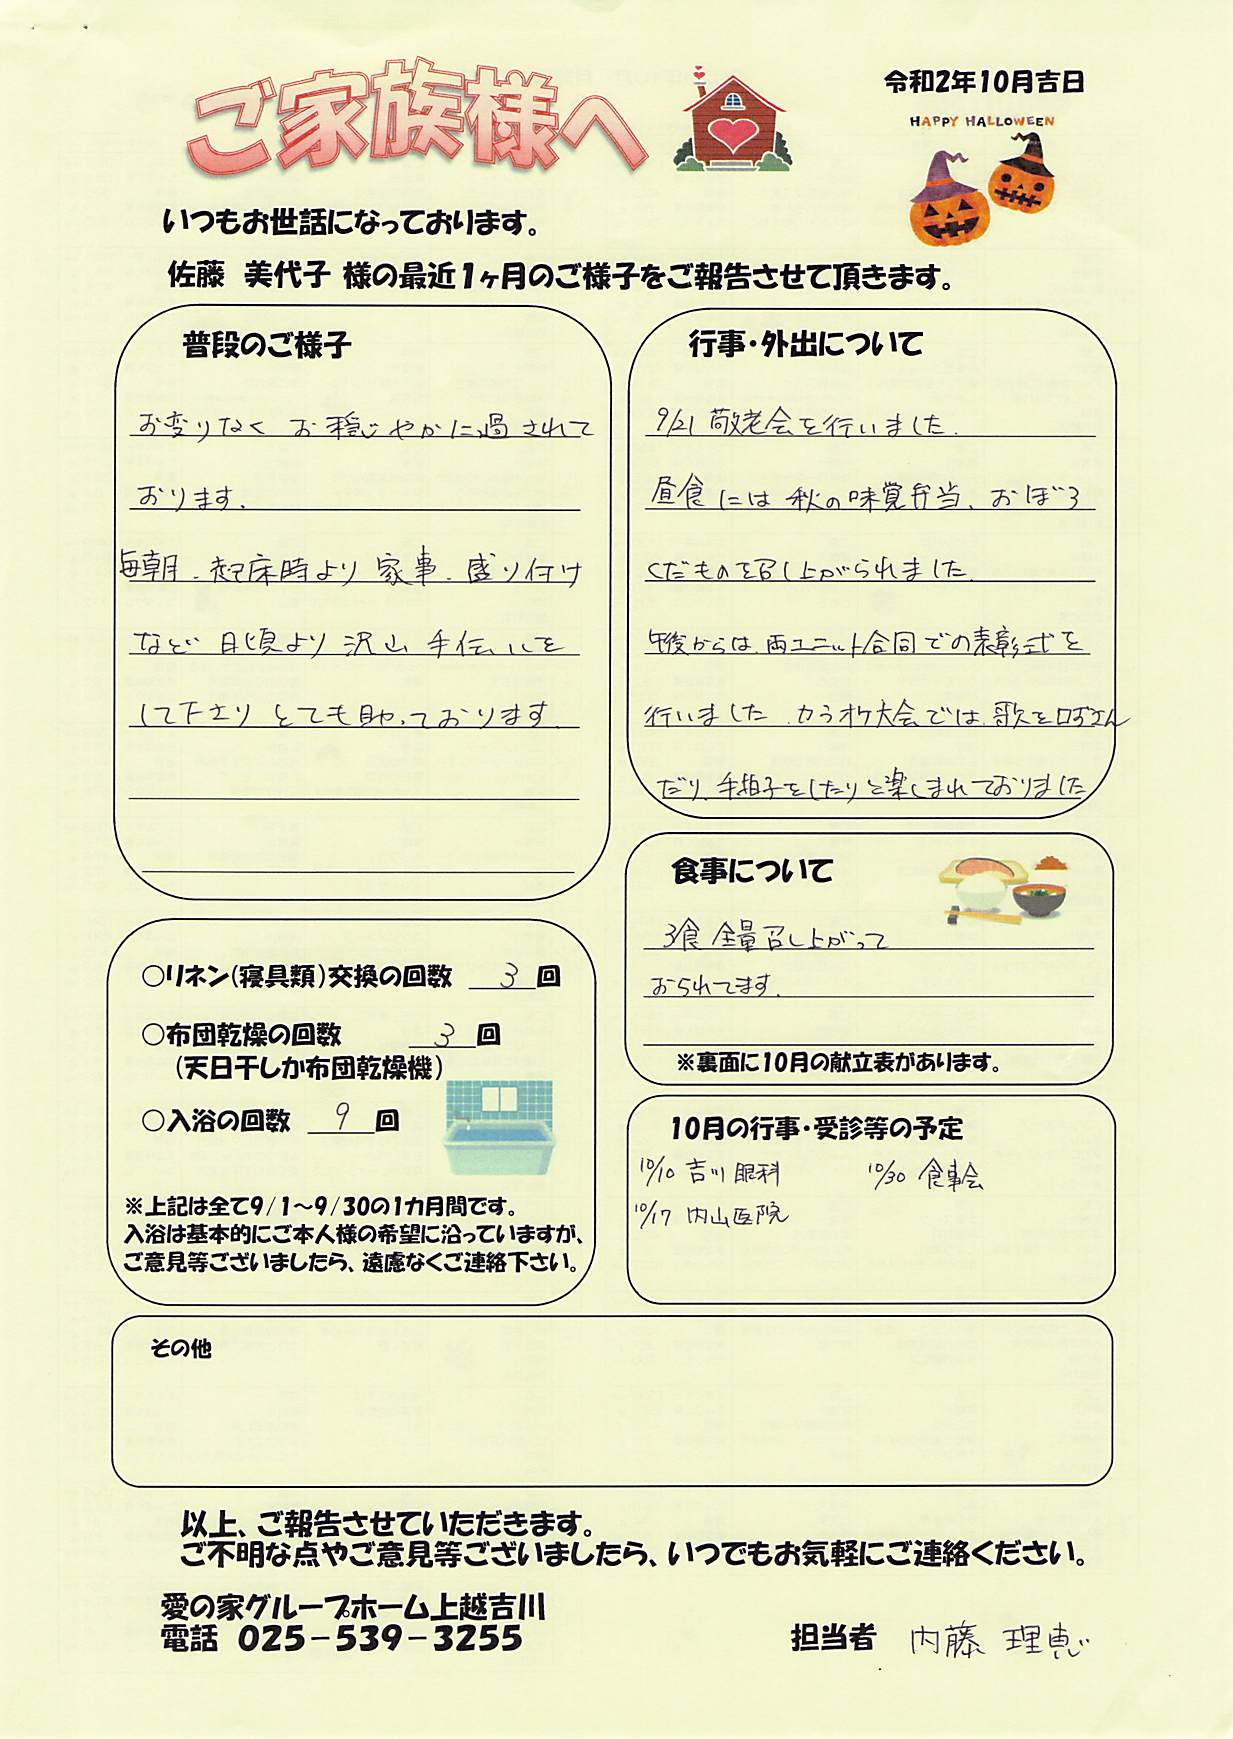 ご家族様へ
令和2年10月吉日
HAPPY HALLOWEEN
いつもお世話になっております。
佐藤 美代子 様の最近1ヶ月のご様子をご報告させて頂きます。
普段のご様子
お変りなく お穏じやかに過されて
おります。
毎朝、起床時より 家事、盛り付け
など 日頃より 沢山 手伝いを
して下さり とても助かっております。
行事・外出について
9/21 敬老会を行いました。
昼食には 秋の味覚弁当、おぼろ
くだものを召し上がられました。
午後からは、両ユニット合同での表彰式を
行いました。カラオケ大会では、歌を口ずさん
だり、手拍子をしたりと楽しまれておりました
食事について
3食 全量召し上がって
おられてます。
※裏面に10月の献立表があります。
○リネン(寝具類)交換の回数 3 回
○布団乾燥の回数 3 回
(天日干しか布団乾燥機)
○入浴の回数 9 回
※上記は全て9/1~9/30の1カ月間です。
入浴は基本的にご本人様の希望に沿っていますが、
ご意見等ございましたら、遠慮なくご連絡下さい。
10月の行事・受診等の予定
10/10 吉川眼科 10/30 食事会
10/17 内山医院
その他
以上、ご報告させていただきます。
ご不明な点やご意見等ございましたら、いつでもお気軽にご連絡ください。
愛の家グループホーム上越吉川
電話 025-539-3255
担当者 内藤 理恵